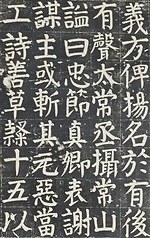 義方俾揚名於有後
有聲大常丞攝常山
謚曰忠節真卿表謝
謀主或斬其元惡當
工詩善草隸十五以